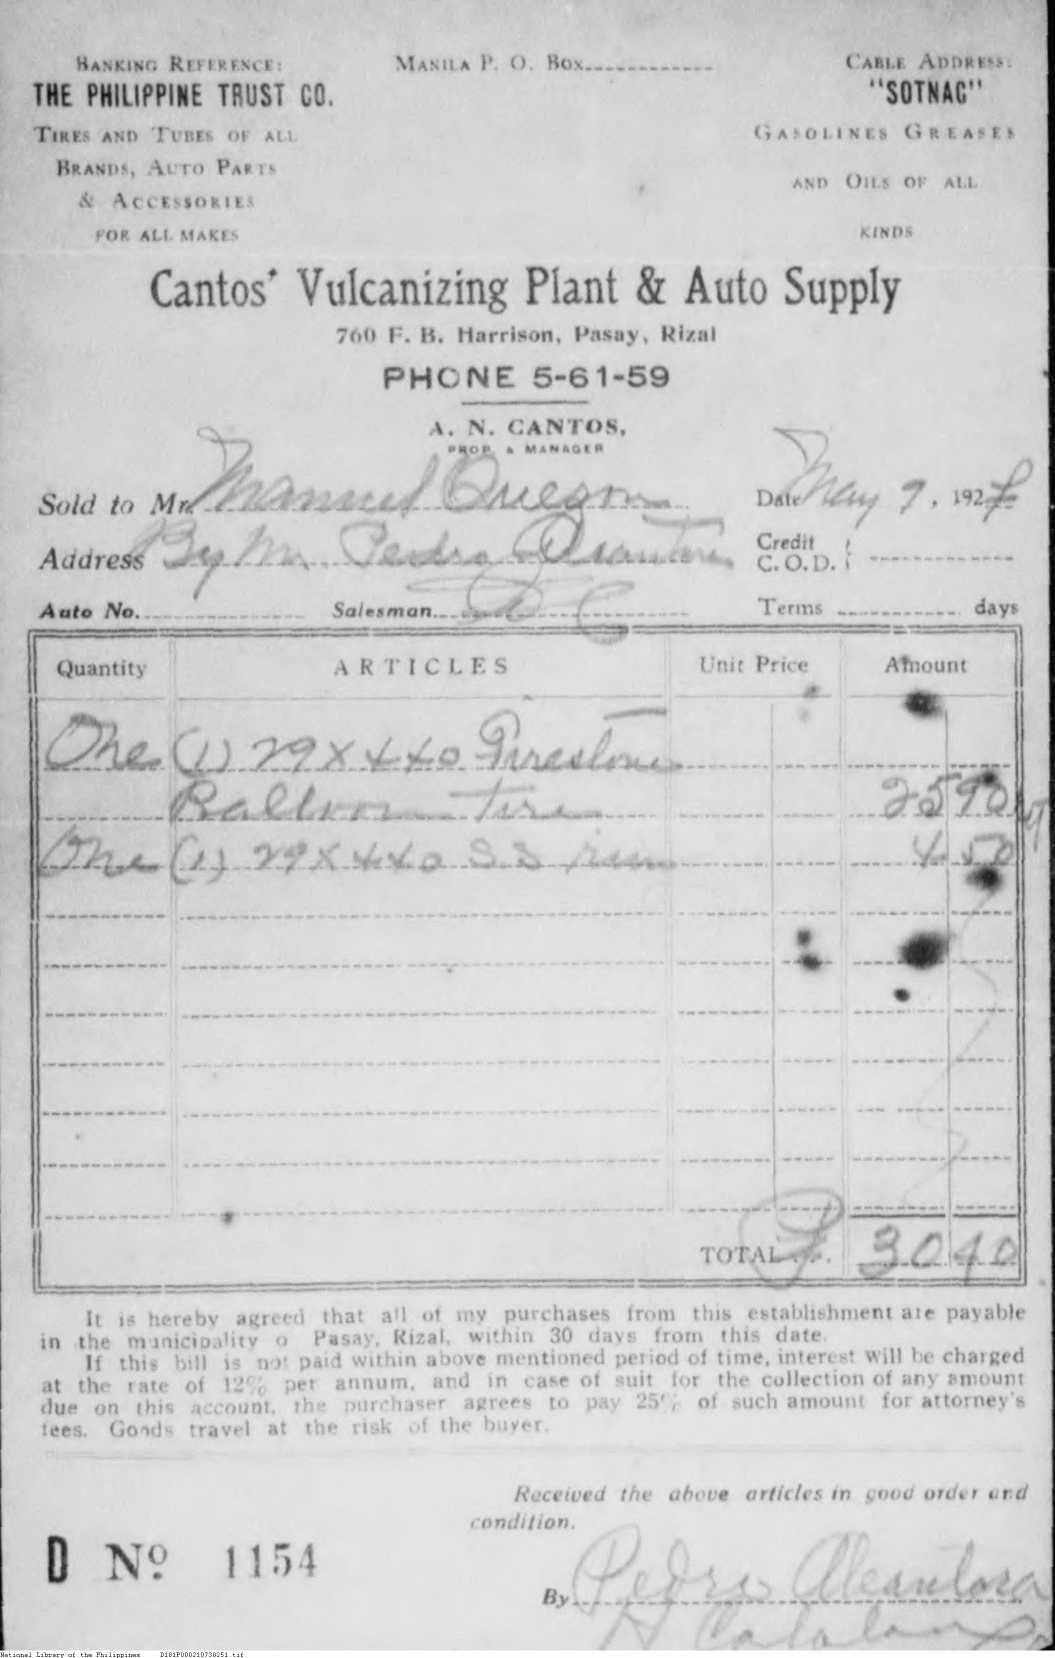 BANKING REFERENCE:
THE PHILIPPINE TRUST CO.
TIRES AND TUBES OF ALL
BRANDS, AUTO PARTS
& ACCESSORIES
FOR ALL MAKES
MANILA P. O. BOX
CABLE ADDRESS:
"SOTNAC"
GASOLINES GREASES
AND OILS OF ALL
KINDS
Cantos' Vulcanizing Plant & Auto Supply
760 F. B. Harrison, Pasay, Rizal
PHONE 5-61-59
A. N. CANTOS,
PROP. & MANAGER
Sold to Mr. Manuel Quezon Date May 9, 192
Address By Mr. Pedro Alcantara Credit C.O.D.
Auto No. Salesman Terms days
Quantity ARTICLES Unit Price Amount
One (1) 29 X 440 Firestone
Balloon Tire 25 90
One (1) 29 X 440 S S rim 4 50
TOTAL ₱ 30 40
It is hereby agreed that all of my purchases from this establishment are payable
in the municipality o Pasay, Rizal, within 30 days from this date.
If this bill is not paid within above mentioned period of time, interest will be charged
at the rate of 12% per annum, and in case of suit for the collection of any amount
due on this account, the purchaser agrees to pay 25% of such amount for attorney's
fees. Goods travel at the risk of the buyer.
Received the above articles in good order and
condition.
D No. 1154
By Pedro Alcantara
National Library of the Philippines D181P000210738251.tif